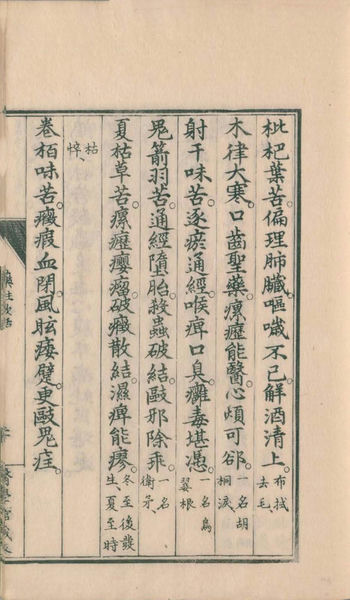 枇杷葉苦。偏理肺臟。嘔噦不已。解酒清上。布拭去毛、
木律大寒。口齒聖藥。瘰癧能醫。心煩可卻。一名胡桐淚、
射干味苦。逐瘀通經。喉痺口臭。癰毒堪憑。一名烏翣根
鬼箭羽苦。通經墮胎。殺蟲破結。敺邪除乖。一名衛矛、
夏枯草苦。瘰癧癭瘤。破癥散結。濕痺能瘳。冬至後發生、夏至時
枯悴、
卷栢味苦。癥瘕血閉。風眩痿躄。更敺鬼疰。